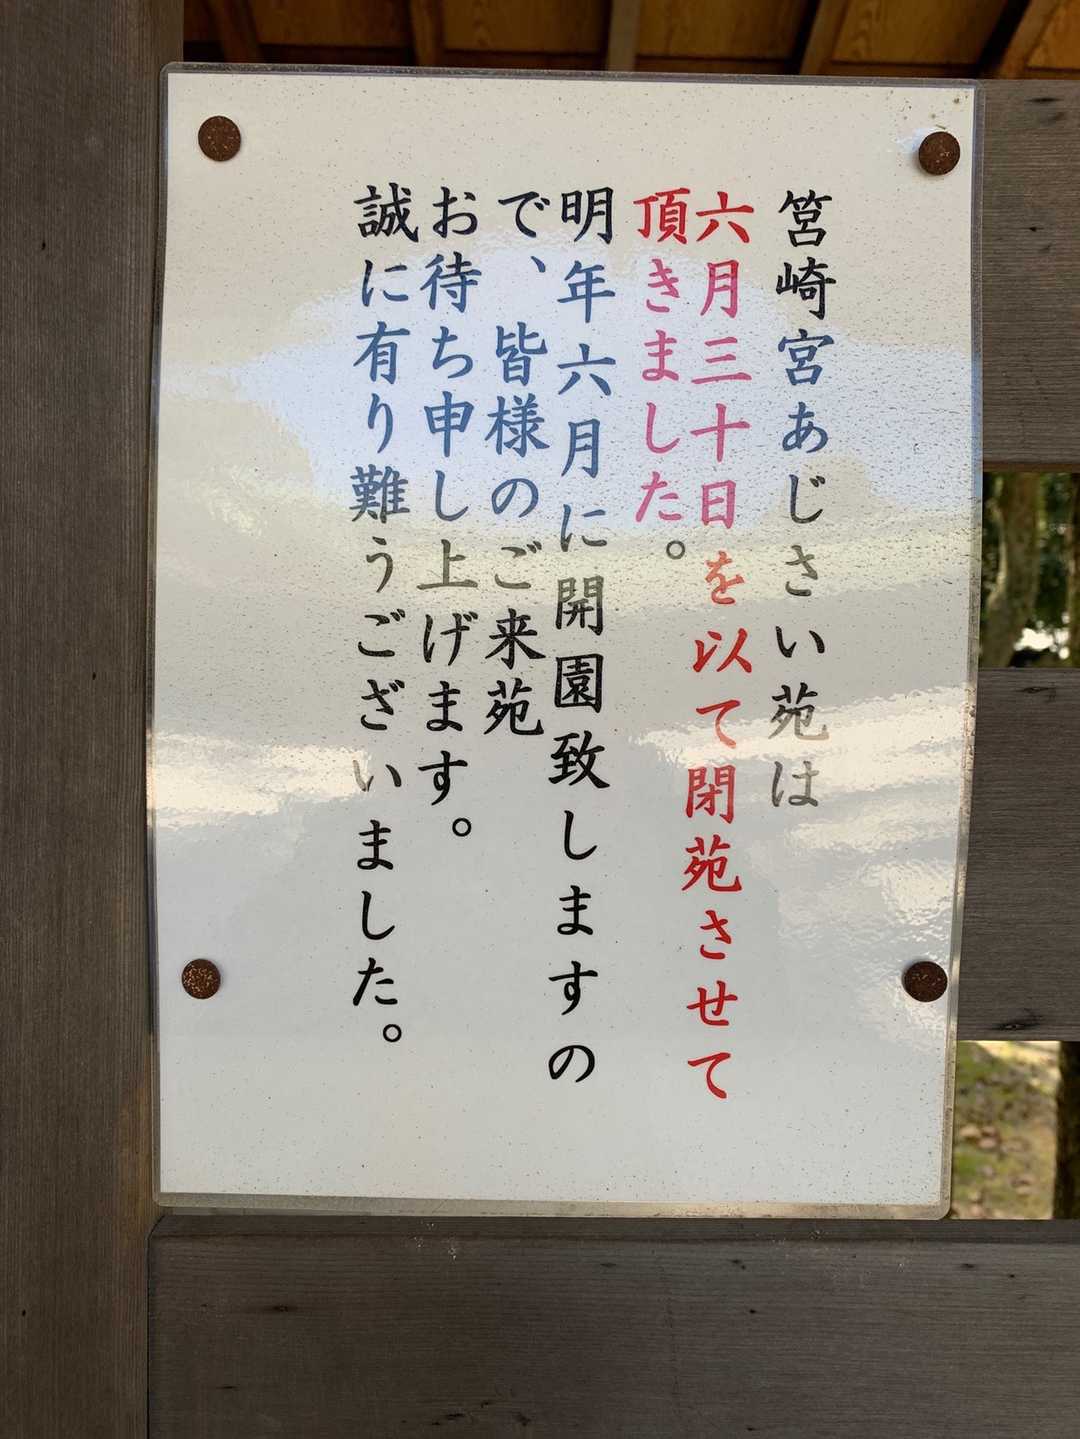 筥崎宮あじさい苑は
六月三十日を以て閉苑させて
頂きました。
明年六月に開園致しますの
で、皆様のご来苑
お待ち申し上げます。
誠に有り難うございました。